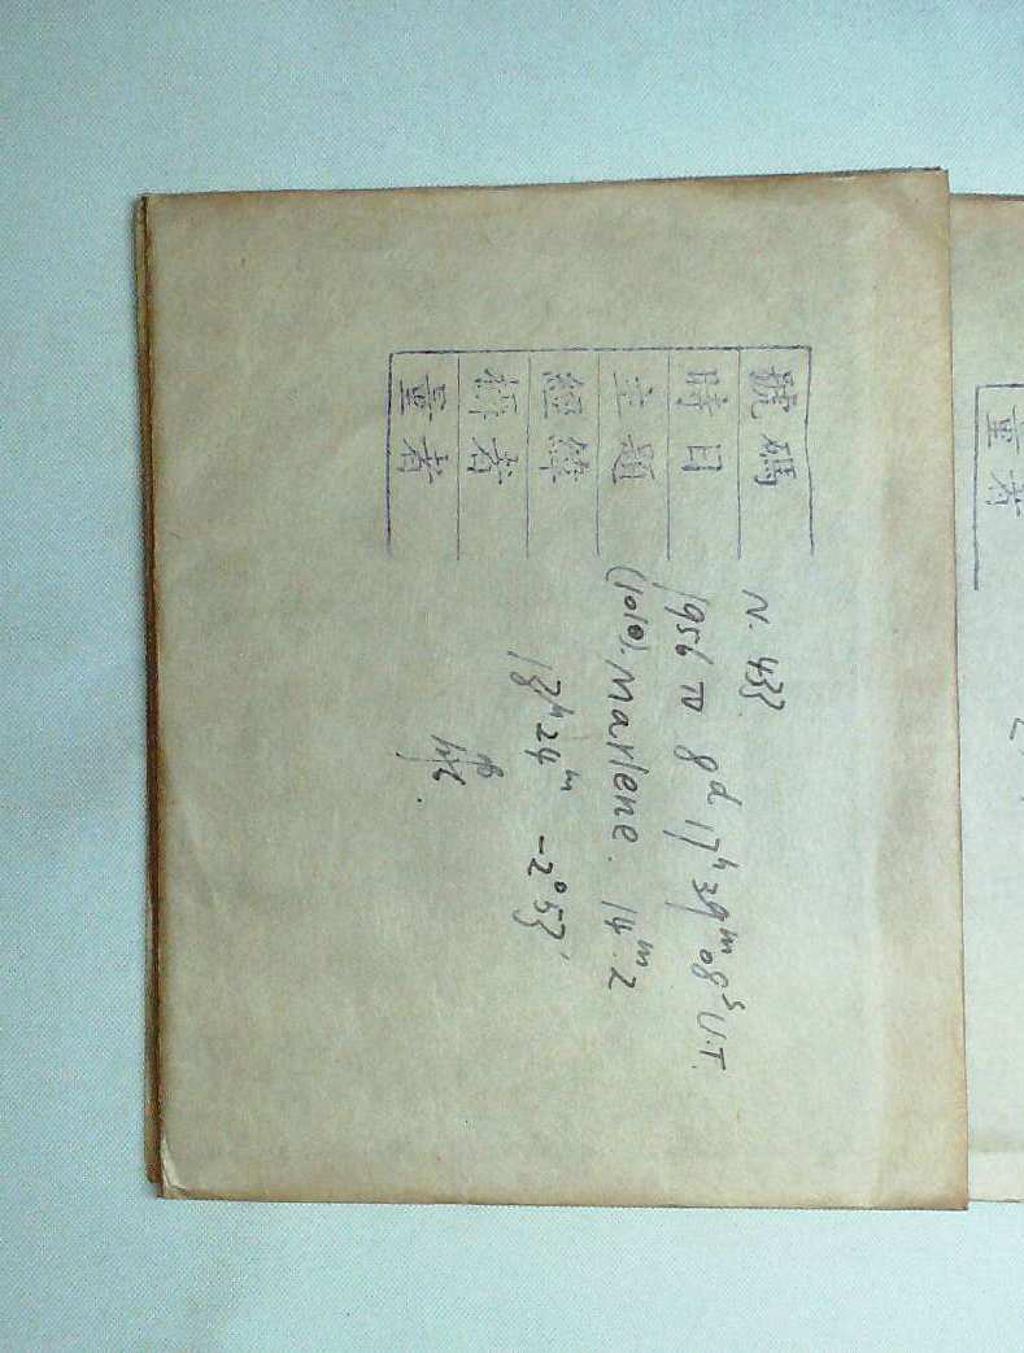 號碼 N. 433
時日 1956 IV 8ᵈ 17ʰ39ᵐ08ˢ U.T.
主題 (1010). Marlene. 14ᵐ.2
經緯 13ʰ24ᵐ -2°53′
者
量者
量者